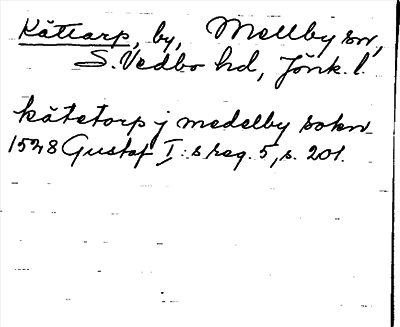 Kättarp, by, Mellby sn,
S. Vedbo hd, Jönk. l.
kätetorp j medelby sokn
1528 Gustaf I:s reg. 5, s. 201.